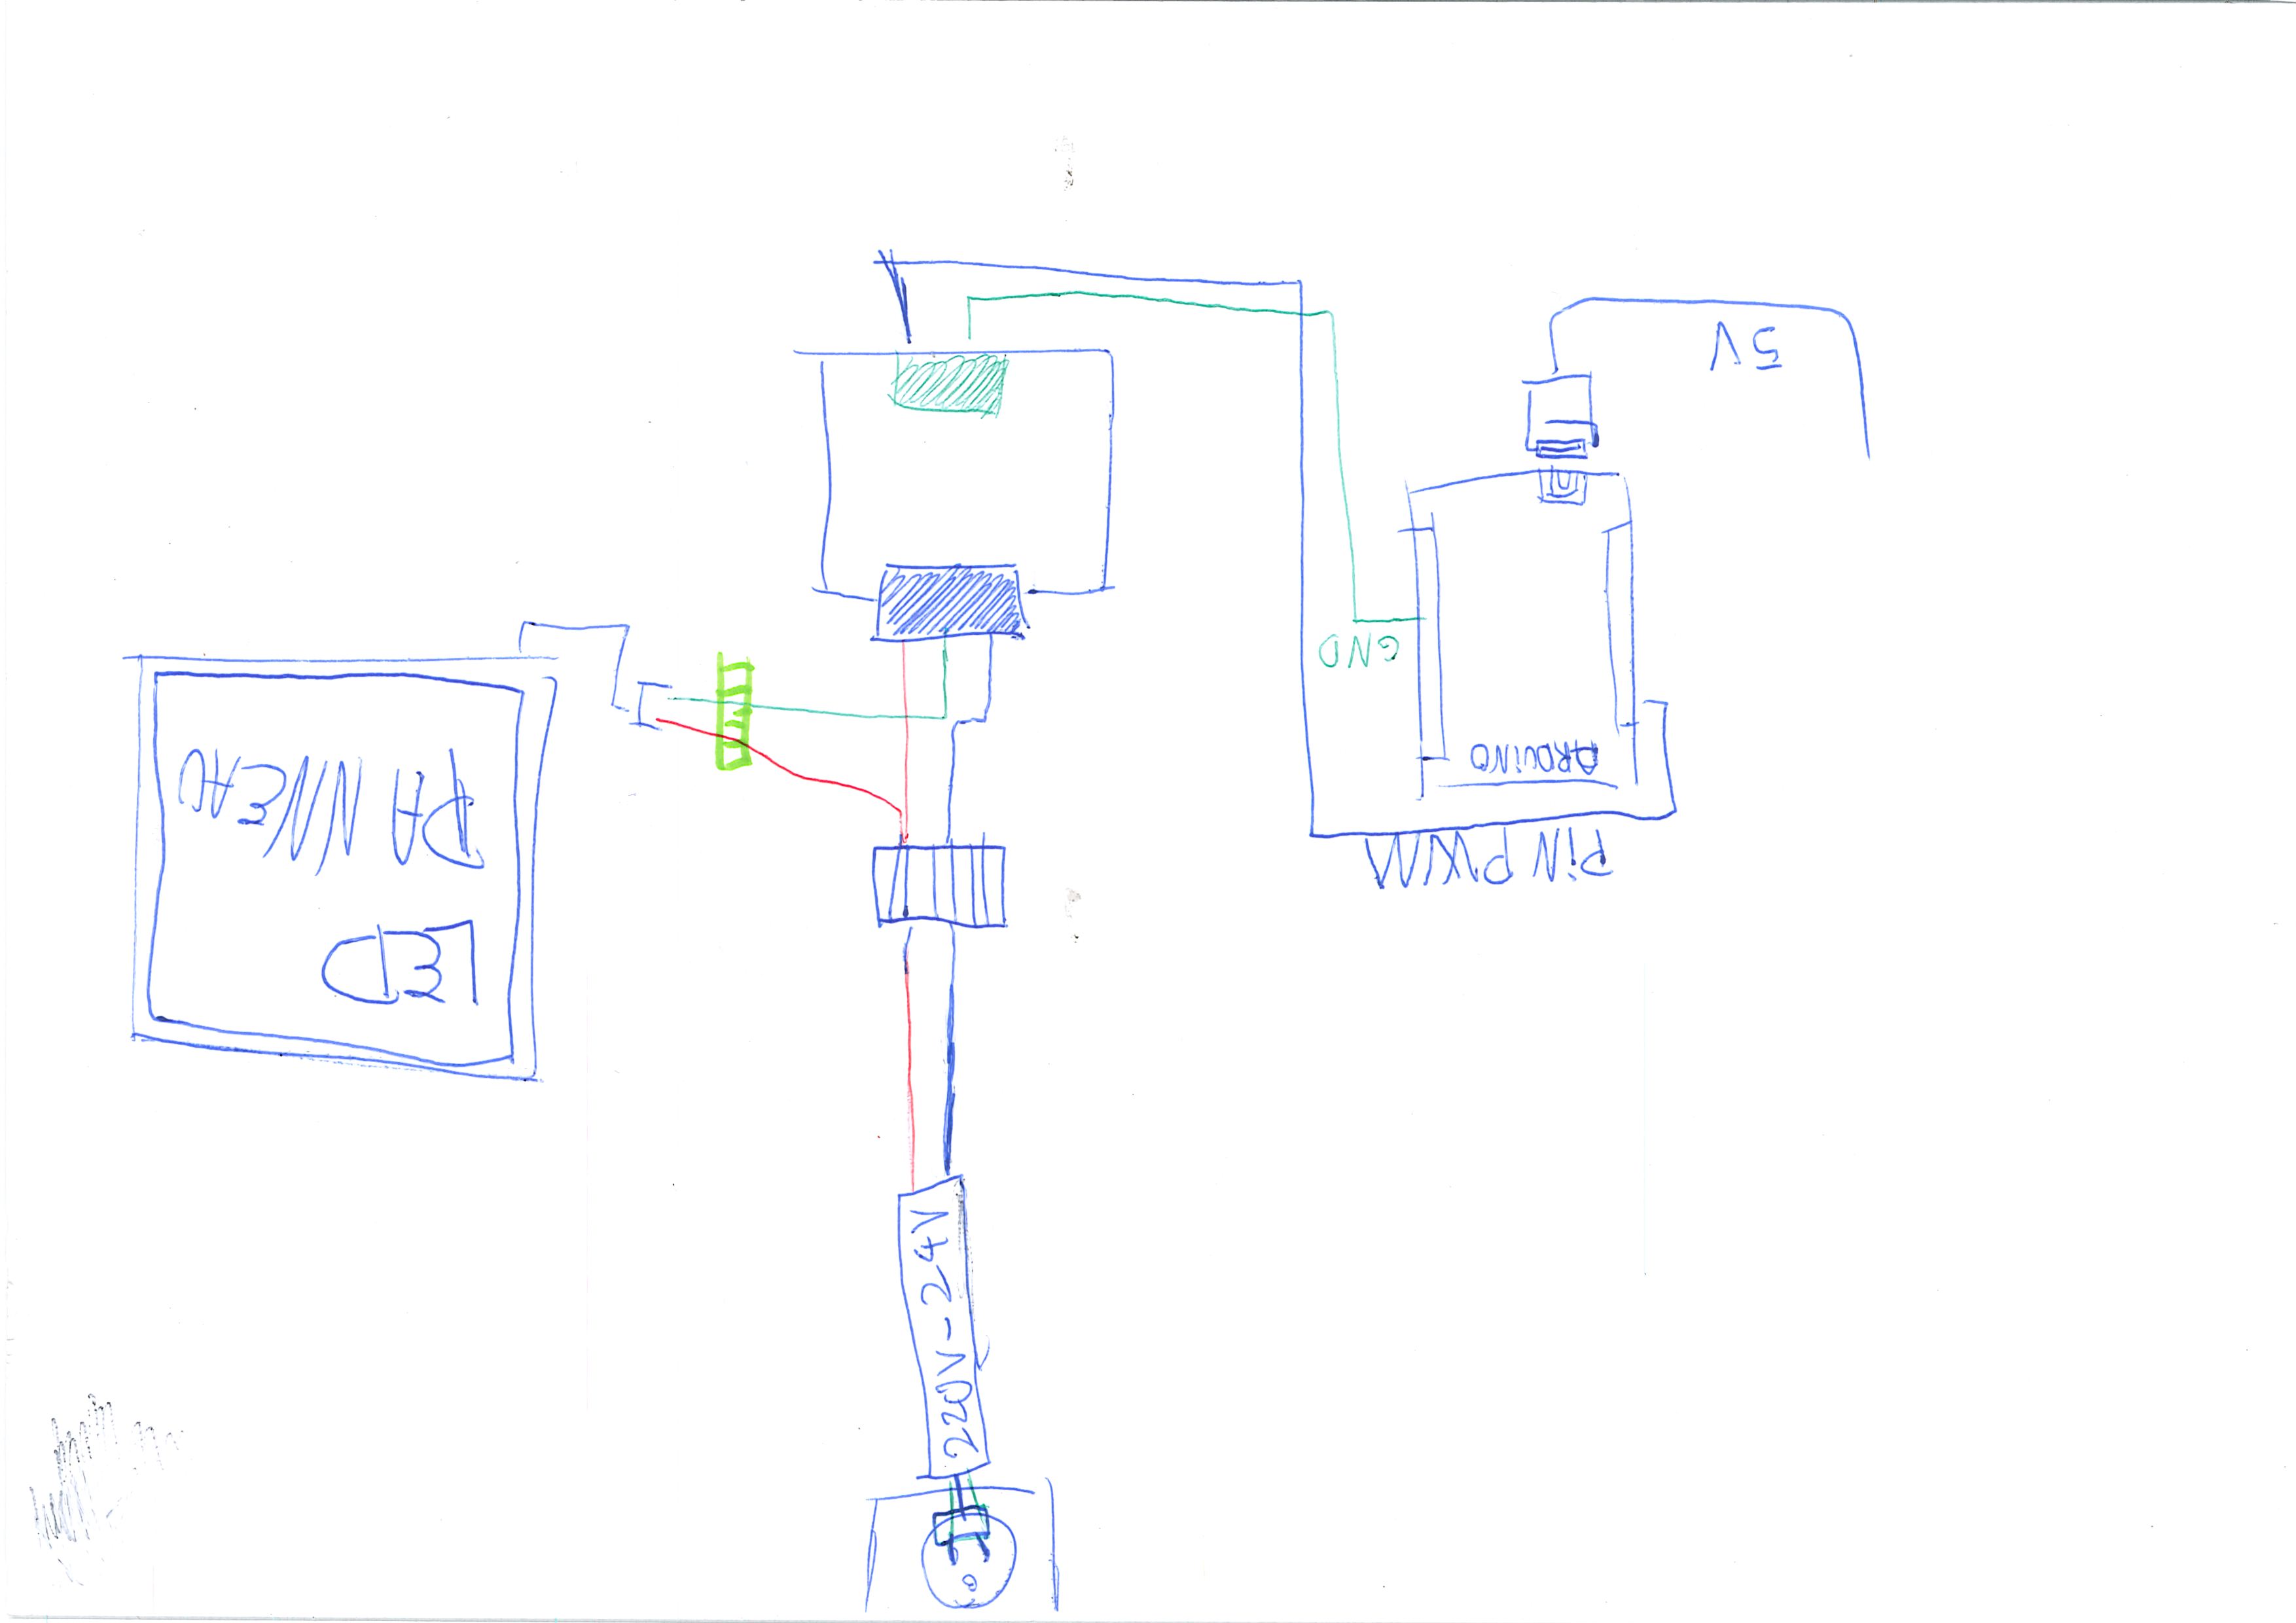 220V-24V
LED
PANNEAU
PiN PWM
ARDUiNO
GND
5V